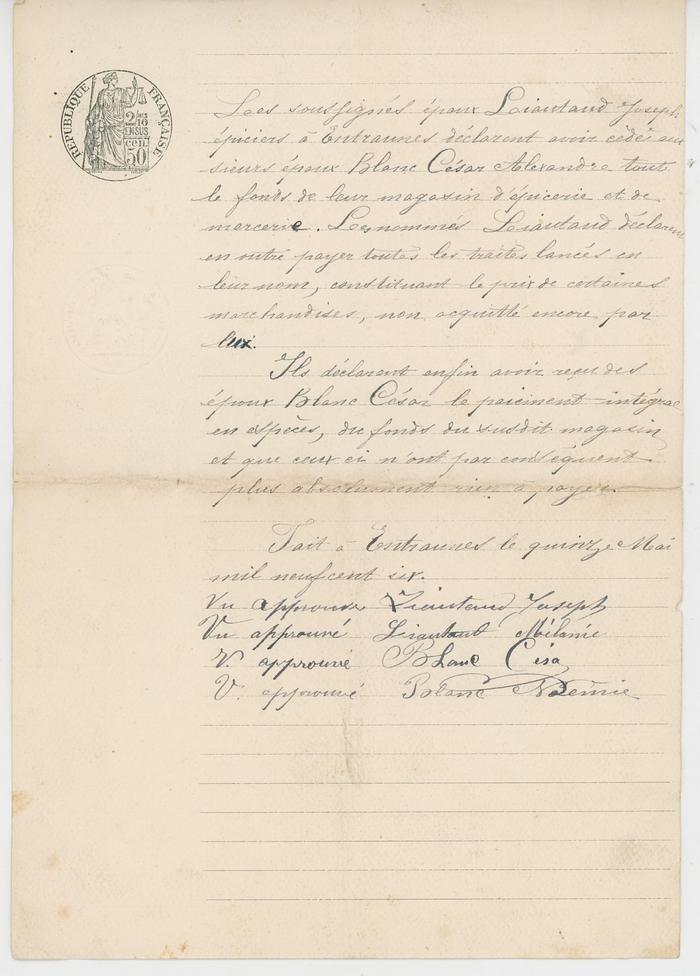 RÉPUBLIQUE FRANÇAISE
2/10ES
EN SUS
50 CEN.
Les soussignés époux Liautaud Joseph
épiciers à Entraunes déclarent avoir cédé aux
sieurs époux Blanc César Alexandre tout
le fonds de leur magasin d'épicerie et de
mercerie. Les nommés Liautaud déclarent
en outre payer toutes les traites lancés en
leur nom, constituant le prix de certaines
marchandises, non acquitté encore par
lui.
Ils déclarent enfin avoir reçu des
époux Blanc César le paiement intégral
en espèces, du fonds du susdit magasin
et que ceux ci n'ont par conséquent
plus absolument rien à payer.
Fait à Entraunes le quinze Mai
mil neuf cent six.
Vu approuvé Liautaud Joseph
Vu approuvé Liautaud Mélanie
V. approuvé Blanc Césa
V. approuvé Blanc Noémie